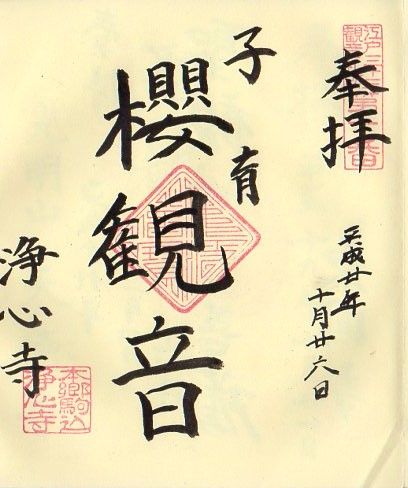 奉拝
平成廿年
十月廿六日
子育
櫻観音
浄心寺
本郷駒込
浄心寺